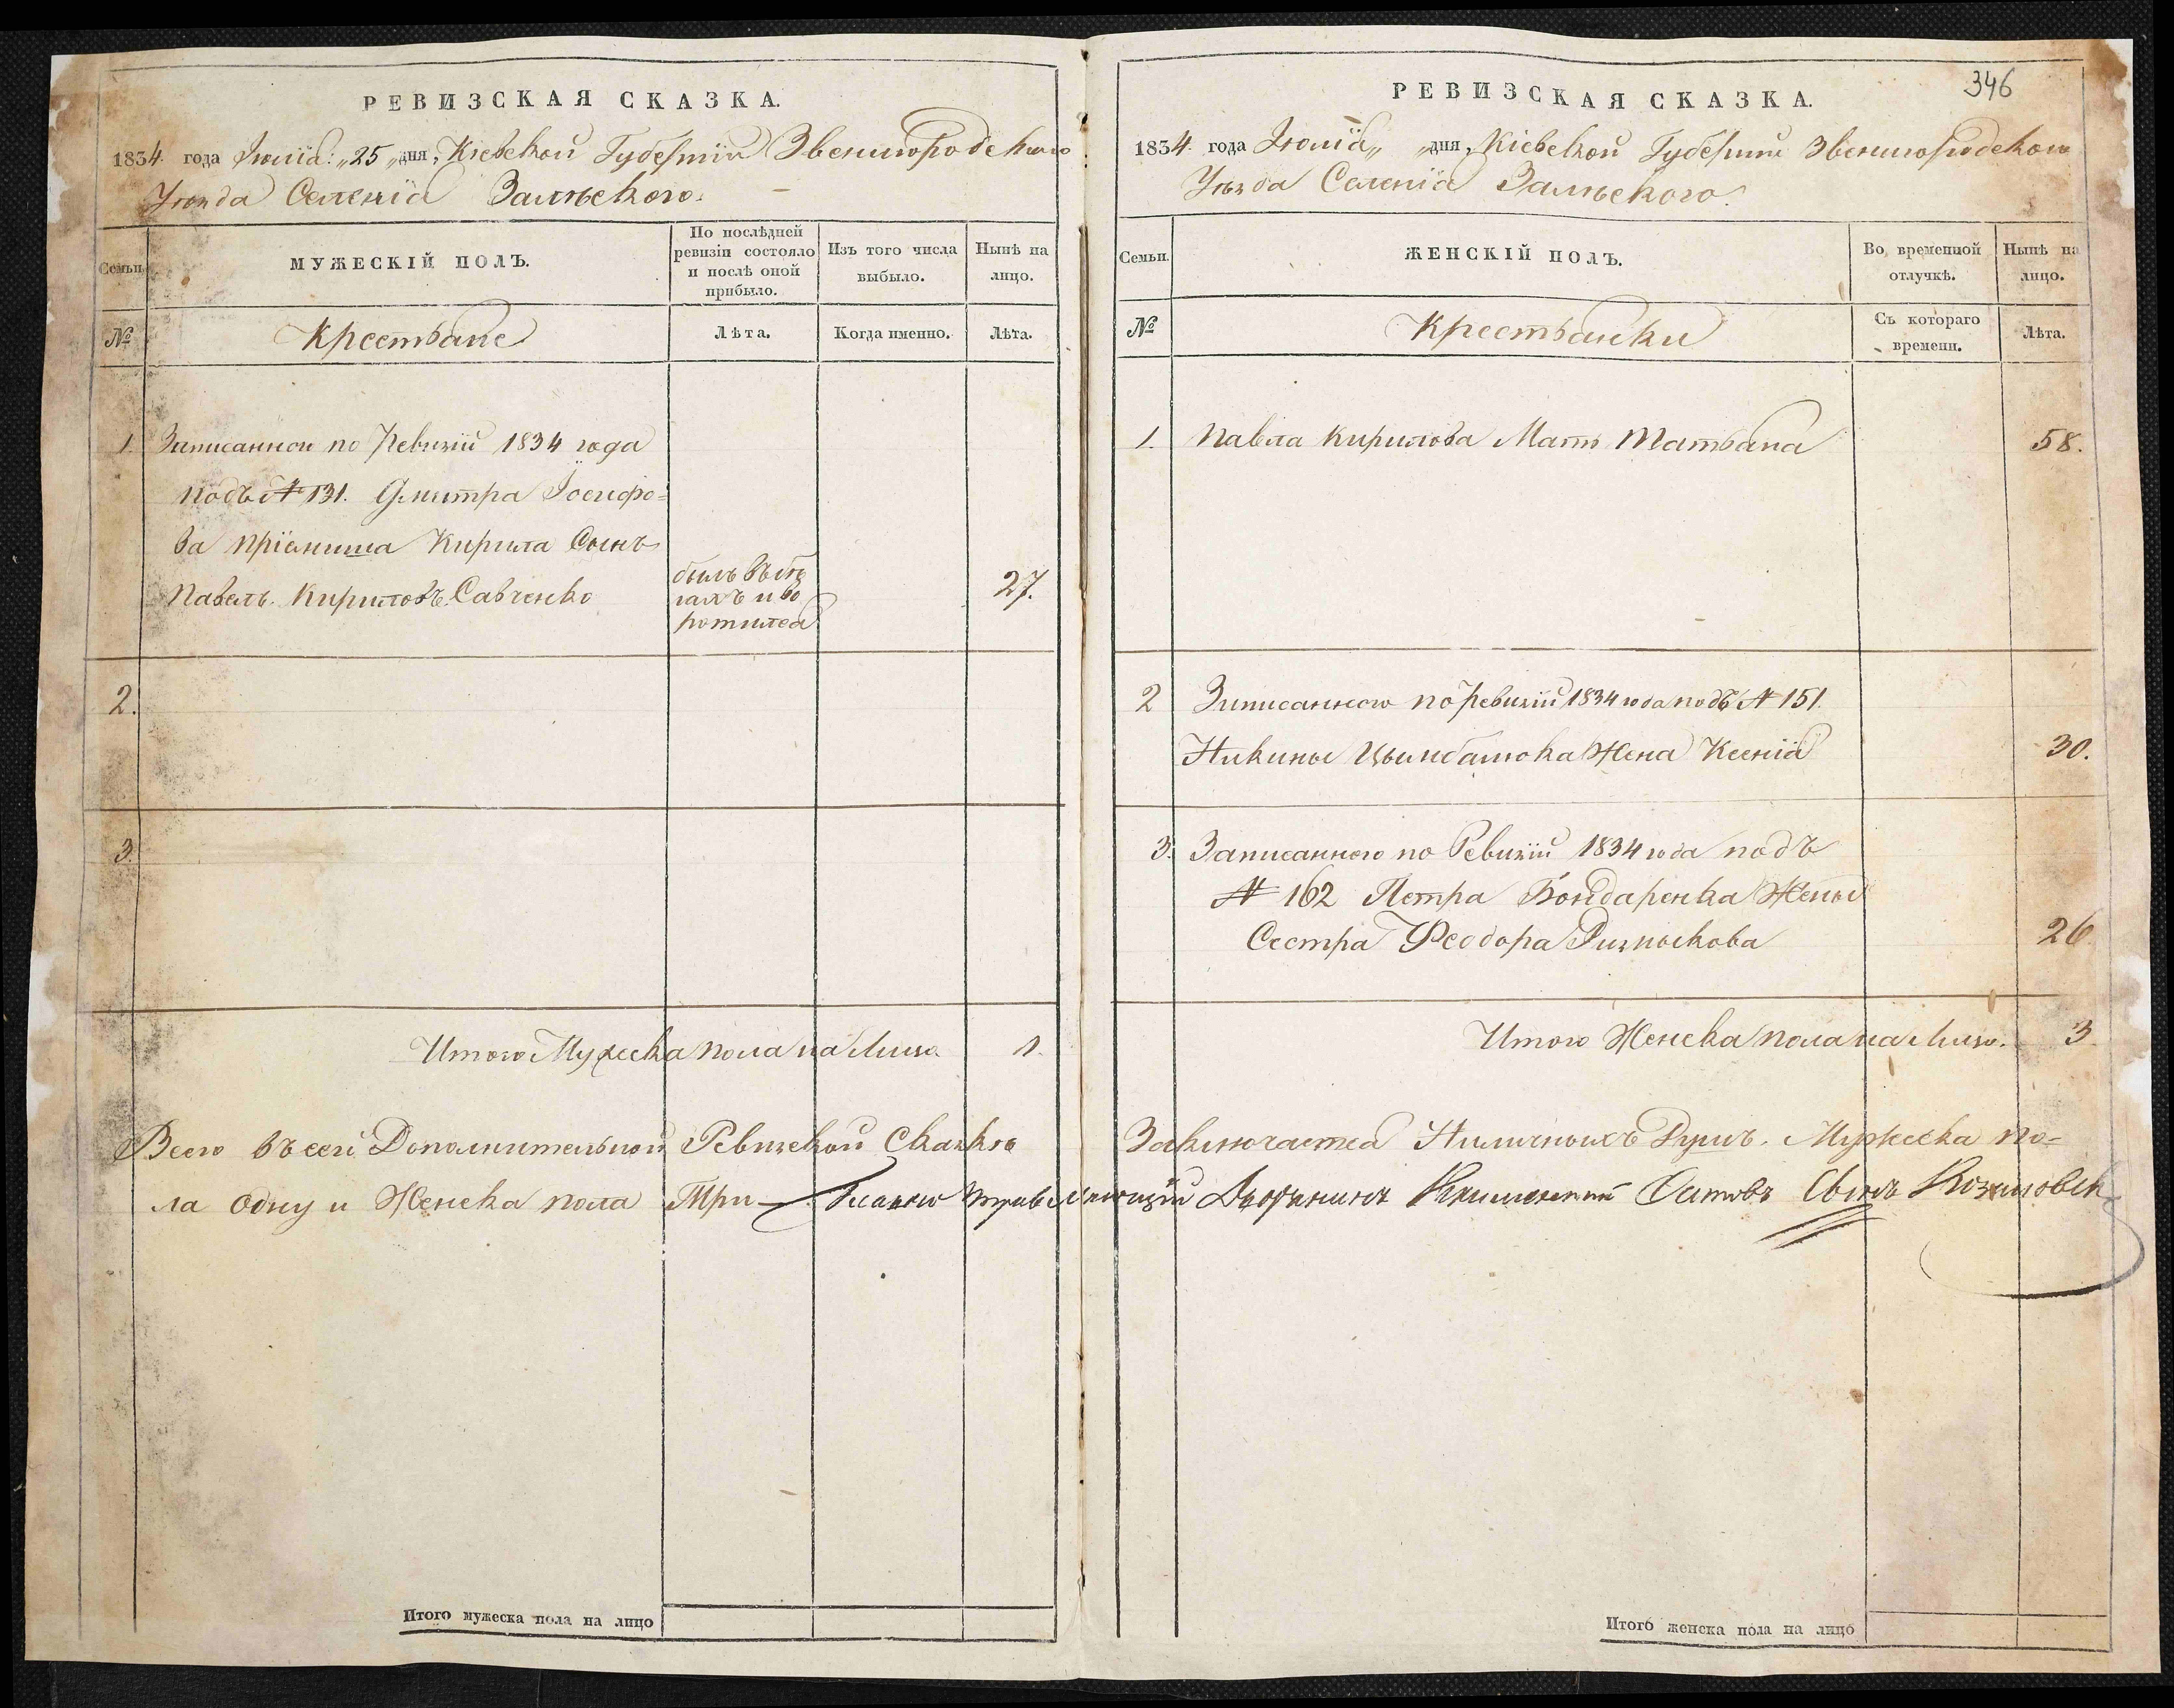 РЕВИЗСКАЯ СКАЗКА.
1834 года Іюлія: „25 „дня, Кіевской Губерніи Звенигородского
Уезда Селенія Залѣского.
Семьи.
МУЖЕСКІЙ ПОЛЪ.
По послѣдней
ревизіи состояло
и послѣ оной
прибыло.
Изъ того числа
выбыло.
Нынѣ на
лицо.
№
Крестьяне
Лѣта.
Когда именно.
Лѣта.
1. Записанной по Ревизіи 1834 года
подъ № 131. Дмитра Іосифо=
ва пріэмиша Кирила Сынъ
Павелъ Кириловъ Савченко
былъ въ бѣ
гахъ и во
ротился
27.
2.
3.
Итого Мужеска пола на Лицо. 1.
Всего въ сей Дополнительной Ревизской Сказкѣ
ла одну и Женска пола Три
Итого мужеска пола на лицо
346
РЕВИЗСКАЯ СКАЗКА.
1834 года Іюлія„ „дня, Кіевской Губерніи Звенигородского
Уѣзда Селенія Залѣского.
Семьи.
ЖЕНСКІЙ ПОЛЪ.
Во временной
отлучкѣ.
Нынѣ на
лицо.
№
Крестьянки
Съ котораго
времени.
Лѣта.
1. Павла Кирилова Мать Татьяна 58.
2 Записанного по Ревизіи 1834 года подъ № 151.
Никины Цымбалюка Жена Ксенія 30.
3. Записанного по Ревизіи 1834 года подъ
№ 162 Петра Бондаренка Жены
Сестра Феодора 26
Итого Женска пола на Лицо. 3
Заключается Наличныхъ Душъ. Мужеска по=
Дворянинъ Климентий Сынъ
Итого женска пола на лицо